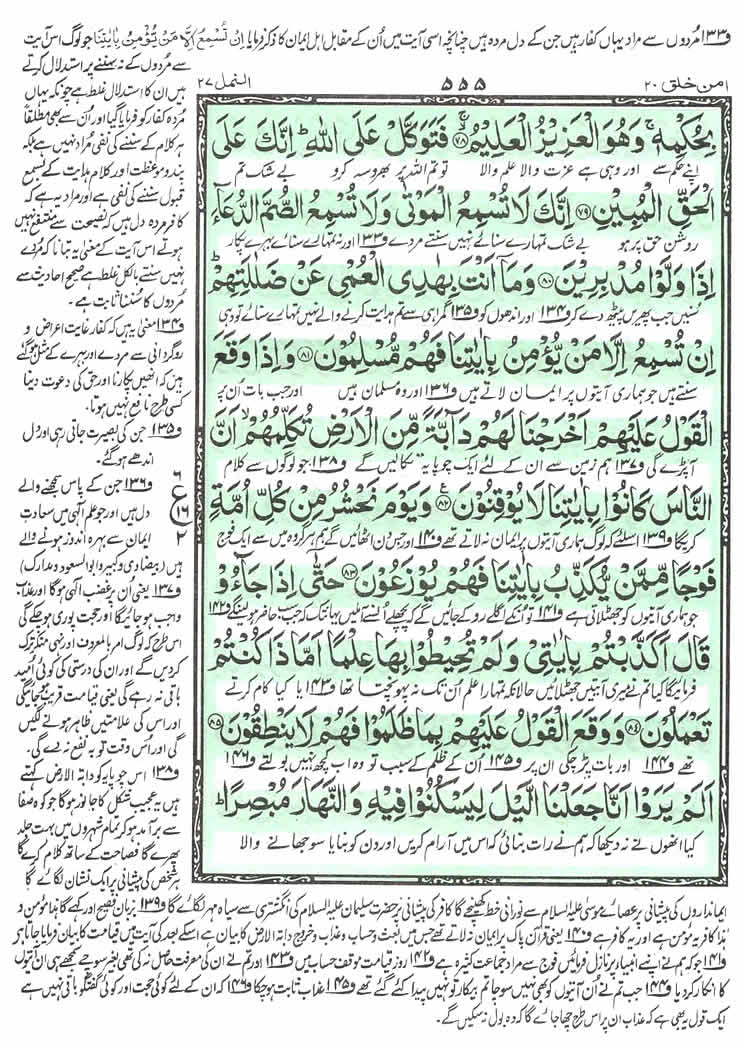 ف۱۳۳ مُردوں سے مراد یہاں کفار ہیں جن کے دل مردہ ہیں چنانچہ اسی آیت میں اُن کے مقابل اہل ایمان کا ذکر فرمایا اِنْ تُسْمِعُ اِلَّا مَنْ یُّؤْمِنُ بِاٰیٰتِنَا جو لوگ اس آیت
سے مُردوں کے نہ سننے پر استدلال کرتے
ہیں ان کا استدلال غلط ہے چونکہ یہاں
مردہ کفار کو فرمایا گیا اور اُن سے بھی مطلقاً
ہر کلام کے سننے کی نفی مراد نہیں ہے بلکہ
پند و موعظت اور کلام ہدایت کے بسمع
قبول سننے کی نفی ہے اور مراد یہ ہے کہ
کافر مردہ دل ہیں کہ نصیحت سے منتفع نہیں
ہوتے اس آیت کے معنی یہ بتانا کہ مُردے
نہیں سنتے بالکل غلط ہے صحیح احادیث سے
مُردوں کا سننا ثابت ہے۔
ف۱۳۴ معنی یہ ہیں کہ کفار غایت اعراض و
روگردانی سے مردے اور بہرے کے مثل ہو گئے
ہیں کہ انھیں پکارنا اور حق کی دعوت دینا
کسی طرح نافع نہیں ہوتا۔
ف۱۳۵ جن کی بصیرت جاتی رہی اور دل
اندھے ہو گئے۔
ف۱۳۶ جن کے پاس سمجھنے والے
دل ہیں اور جو علم الٰہی میں سعادتِ
ایمان سے بہرہ اندوز ہونے والے
ہیں (بیضاوی و کبیر و ابوالسعود و مدارک)
ف۱۳۷ یعنی اُن پر غضب الٰہی ہوگا اور عذاب
واجب ہو جائیگا اور حجت پوری ہو چکے گی
اس طرح کہ لوگ امر بالمعروف اور نہی منکر ترک
کر دیں گے اور ان کی درستی کی کوئی اُمید
باقی نہ رہے گی یعنی قیامت قریب ہو جائیگی
اور اس کی علامتیں ظاہر ہونے لگیں
گی اور اُس وقت توبہ نفع نہ دے گی۔
ف۱۳۸ اس چوپایہ کو دابۃ الارض کہتے
ہیں یہ عجیب شکل کا جانور ہوگا جو کوہ صفا
سے برآمد ہو کر تمام شہروں میں بہت جلد
پھرے گا فصاحت کے ساتھ کلام کرے گا
ہر شخص کی پیشانی پر ایک نشان لگائے گا
امن خلق ۲۰
۵۵۵
النمل ۲۷
بِحُكْمِهٖۚ وَهُوَ الْعَزِيْزُ الْعَلِيْمُ ﴿۷۸﴾ فَتَوَكَّلْ عَلَى اللّٰهِؕ اِنَّكَ عَلَى
اپنے حکم سے اور وہی ہے عزت والا علم والا تو تم اللہ پر بھروسہ کرو بے شک تم
الْحَقِّ الْمُبِيْنِ ﴿۷۹﴾ اِنَّكَ لَا تُسْمِعُ الْمَوْتٰى وَلَا تُسْمِعُ الصُّمَّ الدُّعَآءَ
روشن حق پر ہو بے شک تمہارے سنائے نہیں سنتے مردے ف۱۳۳ اور نہ تمہارے سنائے بہرے پکار
اِذَا وَلَّوْا مُدْبِرِيْنَ ﴿۸۰﴾ وَمَاۤ اَنْتَ بِهٰدِى الْعُمْىِ عَنْ ضَلٰلَتِهِمْؕ
سنیں جب پھریں پیٹھ دے کر ف۱۳۴ اور اندھوں کو ف۱۳۵ گمراہی سے تم ہدایت کرنے والے نہیں تمہارے سنائے تو وہی
اِنْ تُسْمِعُ اِلَّا مَنْ يُّؤْمِنُ بِاٰيٰتِنَا فَهُمْ مُّسْلِمُوْنَ ﴿۸۱﴾ وَاِذَا وَقَعَ
سنتے ہیں جو ہماری آیتوں پر ایمان لاتے ہیں ف۱۳۶ اور وہ مسلمان ہیں اور جب بات اُن پر
الْقَوْلُ عَلَيْهِمْ اَخْرَجْنَا لَهُمْ دَآبَّةً مِّنَ الْاَرْضِ تُكَلِّمُهُمْۙ اَنَّ
آپڑے گی ف۱۳۷ ہم زمین سے ان کے لئے ایک چوپایہ نکالیں گے ف۱۳۸ جو لوگوں سے کلام
النَّاسَ كَانُوْا بِاٰيٰتِنَا لَا يُوْقِنُوْنَ ﴿۸۲﴾ وَيَوْمَ نَحْشُرُ مِنْ كُلِّ اُمَّةٍ
کریگا ف۱۳۹ اسلئے کہ لوگ ہماری آیتوں پر ایمان نہ لاتے تھے ف۱۴۰ اور جس دن اٹھائیں گے ہم ہر گروہ میں سے ایک فوج
فَوْجًا مِّمَّنْ يُّكَذِّبُ بِاٰيٰتِنَا فَهُمْ يُوْزَعُوْنَ ﴿۸۳﴾ حَتّٰۤى اِذَا جَآءُوْ
جو ہماری آیتوں کو جھٹلاتی ہے ف۱۴۱ تو اُنکے اگلے روکے جائیں گے کہ پچھلے اُنسے آملیں یہاں تک کہ جب سب حاضر ہولینگے ف۱۴۲
قَالَ اَكَذَّبْتُمْ بِاٰيٰتِىْ وَلَمْ تُحِيْطُوْا بِهَا عِلْمًا اَمَّا ذَا كُنْتُمْ
فرمائیگا کیا تم نے میری آیتیں جھٹلائیں حالانکہ تمہارا علم اُن تک نہ پہونچتا تھا ف۱۴۳ یا کیا کام کرتے
تَعْمَلُوْنَ ﴿۸۴﴾ وَوَقَعَ الْقَوْلُ عَلَيْهِمْ بِمَا ظَلَمُوْا فَهُمْ لَا يَنْطِقُوْنَ ﴿۸۵﴾
تھے ف۱۴۴ اور بات پڑ چکی ان پر ف۱۴۵ اُن کے ظلم کے سبب تو وہ اب کچھ نہیں بولتے ف۱۴۶
اَلَمْ يَرَوْا اَنَّا جَعَلْنَا الَّيْلَ لِيَسْكُنُوْا فِيْهِ وَالنَّهَارَ مُبْصِرًاؕ
کیا انھوں نے نہ دیکھا کہ ہم نے رات بنائی کہ اس میں آرام کریں اور دن کو بنایا سوجھانے والا
۶
ع
۱۶
۲
ایمانداروں کی پیشانی پر عصائے موسیٰ علیہ السلام سے نورانی خط کھینچے گا کافر کی پیشانی پر حضرت سلیمان علیہ السلام کی انگشتری سے سیاہ مہر لگائے گا ف۱۳۹ بزبان فصیح اور کہے گا ہٰذا مومن و
ہٰذا کافر یہ مؤمن ہے اور یہ کافر ہے ف۱۴۰ یعنی قرآن پاک پر ایمان نہ لاتے تھے جس میں بعث و حساب و عذاب و خروج دابۃ الارض کا بیان ہے اسکے بعد کی آیت میں قیامت کا بیان فرمایا جاتا ہے
ف۱۴۱ جو کہ ہم نے اپنے انبیاء پر نازل فرمائیں فوج سے مراد جماعت کثیرہ ہے ف۱۴۲ روز قیامت موقف حساب میں ف۱۴۳ اور تم نے اُن کی معرفت حاصل نہ کی تھی بغیر سوچے سمجھے ہی ان آیتوں
کا انکار کر دیا ف۱۴۴ جب تم نے اُن آیتوں کو بھی نہیں سوچا تم بیکار تو نہیں پیدا کئے گئے تھے ف۱۴۵ عذاب ثابت ہو چکا ف۱۴۶ کہ ان کے لئے کوئی حجت اور کوئی گفتگو باقی نہیں ہے
ایک قول یہ بھی ہے کہ عذاب ان پر اس طرح چھا جائے گا کہ وہ بول نہ سکیں گے۔